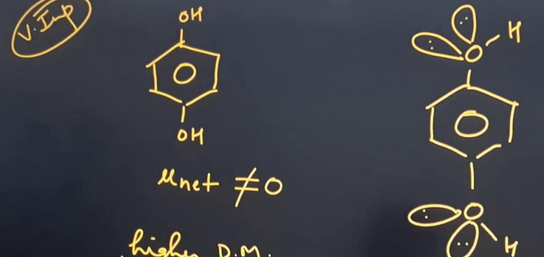 V. Imp
OH
OH
μnet ≠ 0
higher D.M.
O H
O
H